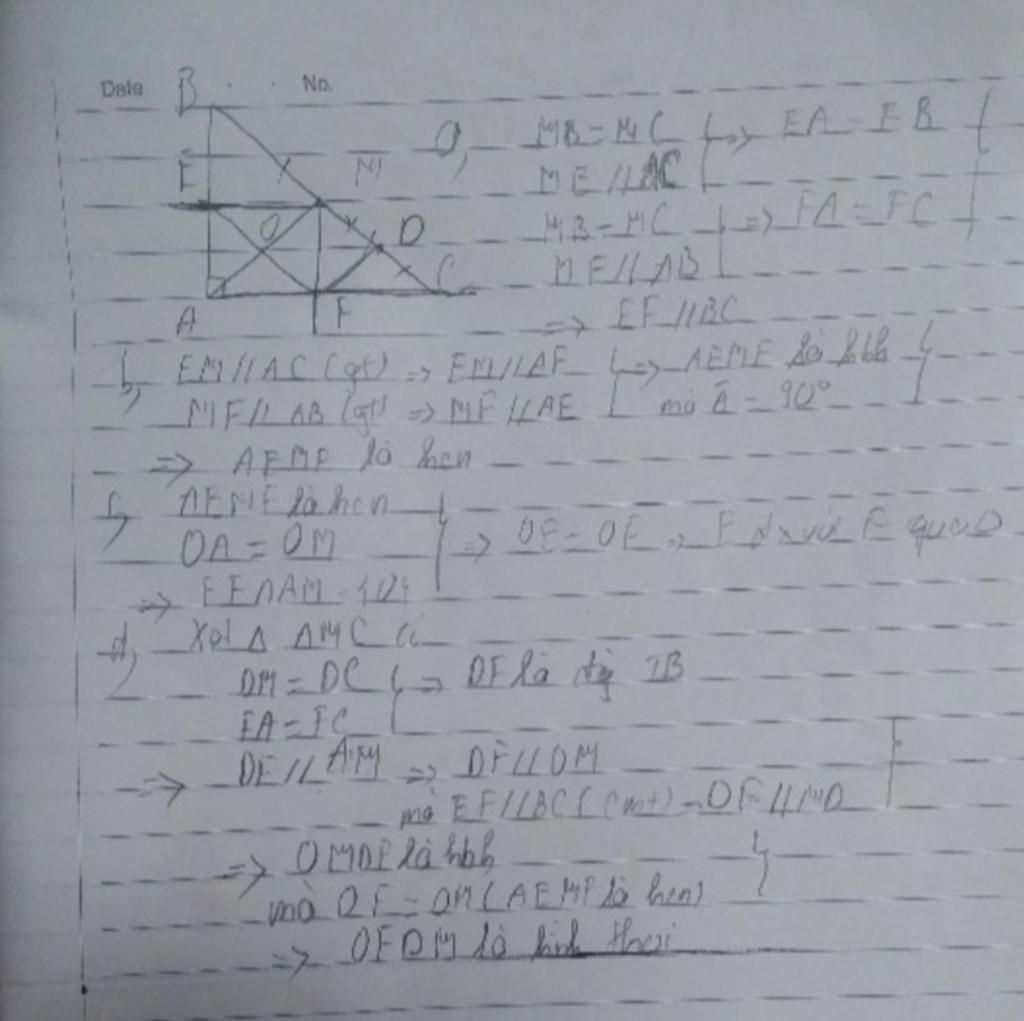 Date No.
B
E
M
O
D
C
A
F
a, MB = MC } => EA = EB }
ME // AC
MB = MC } => FA = FC
MF // AB
=> EF // BC
b, EM // AC (gt) => EM // AF } => AEMF là hbh }
MF // AB (gt) => MF // AE mà Â = 90°
=> AEMF là hcn
c, AEMF là hcn } => OE = OF => E đx với F qua O
OA = OM
=> EF ∩ AM = {O}
d, Xét Δ AMC có
DM = DC } => DF là đg TB
FA = FC
=> DF // AM => DF // OM
mà EF // BC (cmt) => OF // MD
=> OMDF là hbh }
mà OF = OM (AEMF là hcn)
=> OFDM là hình thoi